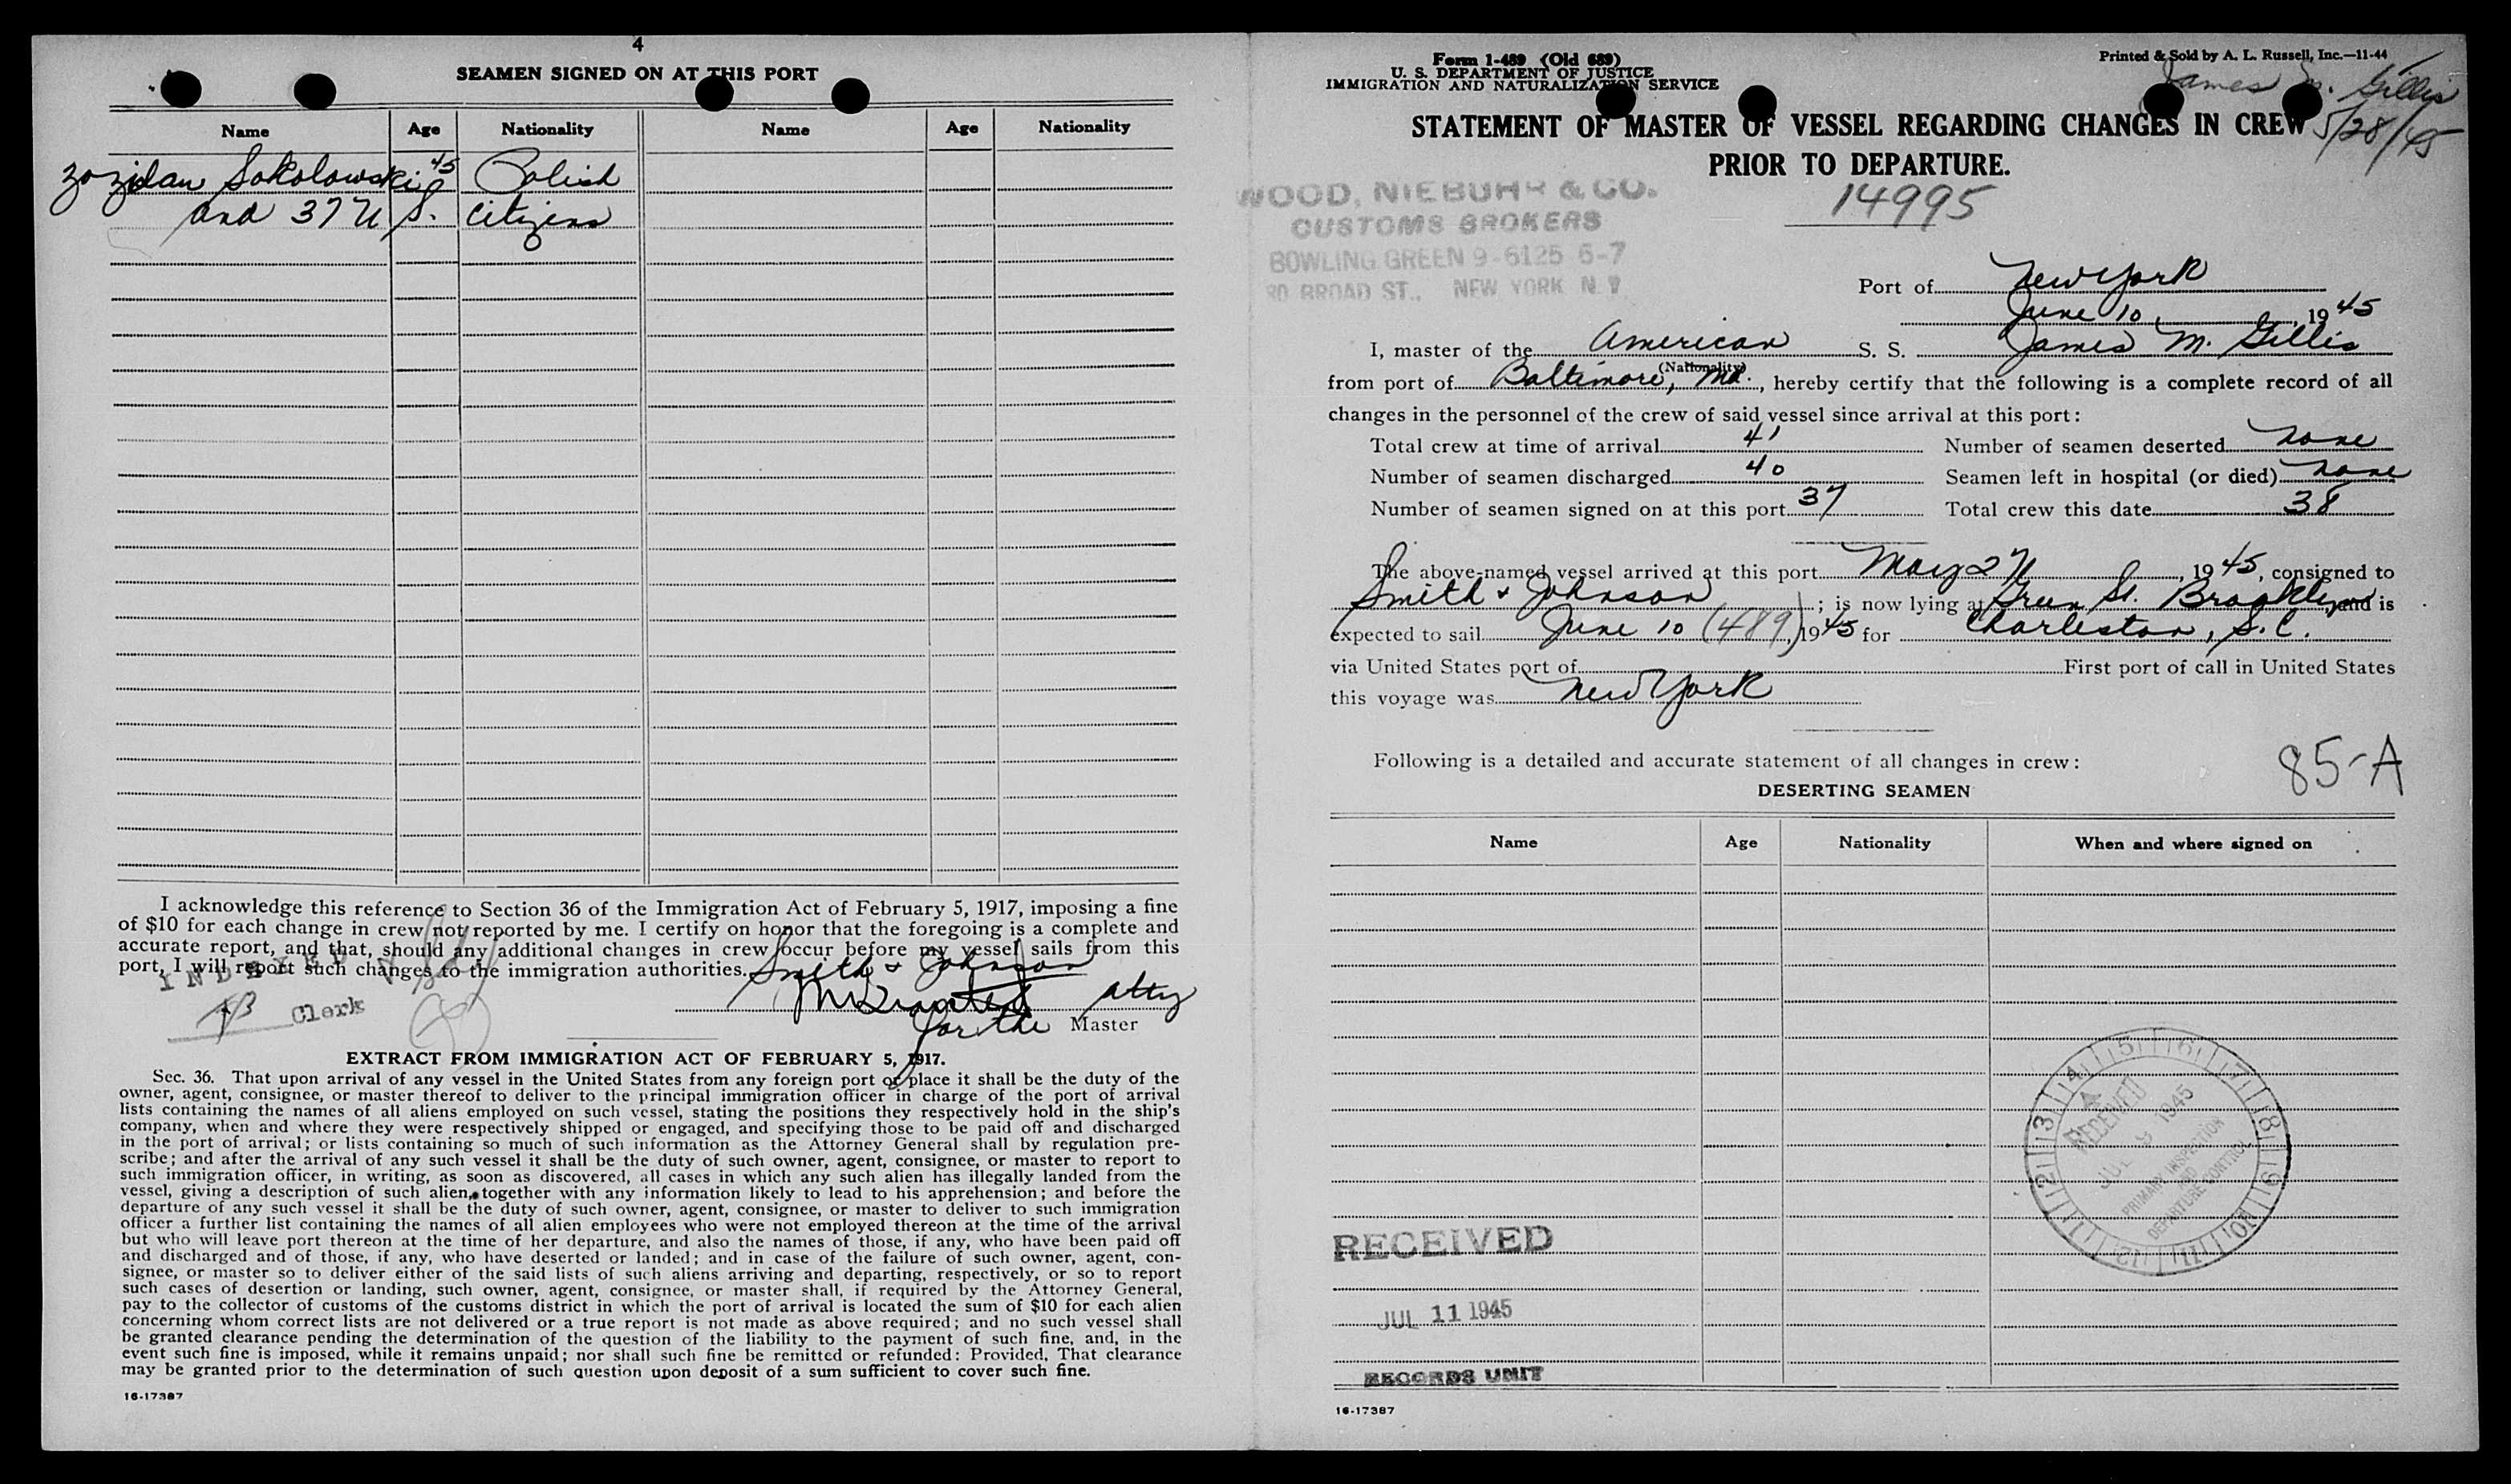 4
SEAMEN SIGNED ON AT THIS PORT
Name Age Nationality Name Age Nationality
Sokolowski 45 Polish
and 37 U.S. Citizens
I acknowledge this reference to Section 36 of the Immigration Act of February 5, 1917, imposing a fine
of $10 for each change in crew not reported by me. I certify on honor that the foregoing is a complete and
accurate report, and that, should any additional changes in crew occur before my vessel sails from this
port, I will report such changes to the immigration authorities.
Smith & Johnson
INDEXED
Clerk
Atty
for the Master
EXTRACT FROM IMMIGRATION ACT OF FEBRUARY 5, 1917.
Sec. 36. That upon arrival of any vessel in the United States from any foreign port or place it shall be the duty of the
owner, agent, consignee, or master thereof to deliver to the principal immigration officer in charge of the port of arrival
lists containing the names of all aliens employed on such vessel, stating the positions they respectively hold in the ship's
company, when and where they were respectively shipped or engaged, and specifying those to be paid off and discharged
in the port of arrival; or lists containing so much of such information as the Attorney General shall by regulation pre-
scribe; and after the arrival of any such vessel it shall be the duty of such owner, agent, consignee, or master to report to
such immigration officer, in writing, as soon as discovered, all cases in which any such alien has illegally landed from the
vessel, giving a description of such alien, together with any information likely to lead to his apprehension; and before the
departure of any such vessel it shall be the duty of such owner, agent, consignee, or master to deliver to such immigration
officer a further list containing the names of all alien employees who were not employed thereon at the time of the arrival
but who will leave port thereon at the time of her departure, and also the names of those, if any, who have been paid off
and discharged and of those, if any, who have deserted or landed; and in case of the failure of such owner, agent, con-
signee, or master so to deliver either of the said lists of such aliens arriving and departing, respectively, or so to report
such cases of desertion or landing, such owner, agent, consignee, or master shall, if required by the Attorney General,
pay to the collector of customs of the customs district in which the port of arrival is located the sum of $10 for each alien
concerning whom correct lists are not delivered or a true report is not made as above required; and no such vessel shall
be granted clearance pending the determination of the question of the liability to the payment of such fine, and, in the
event such fine is imposed, while it remains unpaid; nor shall such fine be remitted or refunded: Provided, That clearance
may be granted prior to the determination of such question upon deposit of a sum sufficient to cover such fine.
16-17387
Form I-489 (Old 689)
U. S. DEPARTMENT OF JUSTICE
IMMIGRATION AND NATURALIZATION SERVICE
Printed & Sold by A. L. Russell, Inc.—11-44
James M. Gillis
5/28/45
STATEMENT OF MASTER OF VESSEL REGARDING CHANGES IN CREW
PRIOR TO DEPARTURE.
14995
WOOD, NIEBUHR & CO.
CUSTOMS BROKERS
BOWLING GREEN 9-6125 6-7
80 BROAD ST., NEW YORK N. Y
Port of New York
June 10, 1945
I, master of the American S. S. James M. Gillis
(Nationality)
from port of Baltimore, Md., hereby certify that the following is a complete record of all
changes in the personnel of the crew of said vessel since arrival at this port:
Total crew at time of arrival 41 Number of seamen deserted none
Number of seamen discharged 40 Seamen left in hospital (or died) none
Number of seamen signed on at this port 37 Total crew this date 38
The above-named vessel arrived at this port May 27, 1945, consigned to
Smith & Johnson; is now lying at Green St. Brooklyn and is
expected to sail June 10 (489), 1945 for Charleston, S.C.
via United States port of First port of call in United States
this voyage was New York
Following is a detailed and accurate statement of all changes in crew:
85-A
DESERTING SEAMEN
Name Age Nationality When and where signed on
1 2 3 4 5 6 7 8 9 10 11 12
A.
RECEIVED
JUL 9 1945
PRIMARY INSPECTION
AND
DEPARTURE CONTROL
RECEIVED
JUL 11 1945
RECORDS UNIT
16-17387